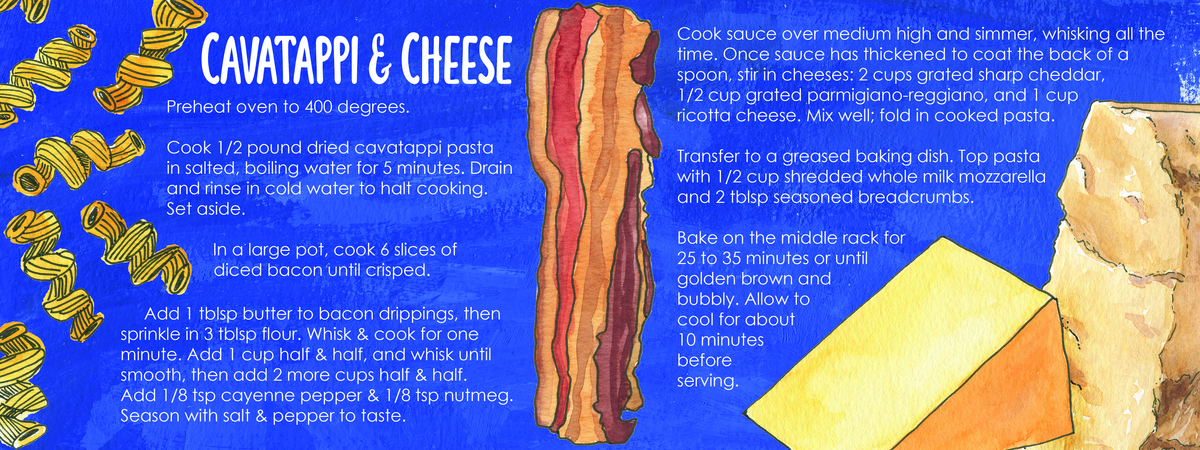 CAVATAPPI & CHEESE
Preheat oven to 400 degrees.
Cook 1/2 pound dried cavatappi pasta
in salted, boiling water for 5 minutes. Drain
and rinse in cold water to halt cooking.
Set aside.
In a large pot, cook 6 slices of
diced bacon until crisped.
Add 1 tblsp butter to bacon drippings, then
sprinkle in 3 tblsp flour. Whisk & cook for one
minute. Add 1 cup half & half, and whisk until
smooth, then add 2 more cups half & half.
Add 1/8 tsp cayenne pepper & 1/8 tsp nutmeg.
Season with salt & pepper to taste.
Cook sauce over medium high and simmer, whisking all the
time. Once sauce has thickened to coat the back of a
spoon, stir in cheeses: 2 cups grated sharp cheddar,
1/2 cup grated parmigiano-reggiano, and 1 cup
ricotta cheese. Mix well; fold in cooked pasta.
Transfer to a greased baking dish. Top pasta
with 1/2 cup shredded whole milk mozzarella
and 2 tblsp seasoned breadcrumbs.
Bake on the middle rack for
25 to 35 minutes or until
golden brown and
bubbly. Allow to
cool for about
10 minutes
before
serving.